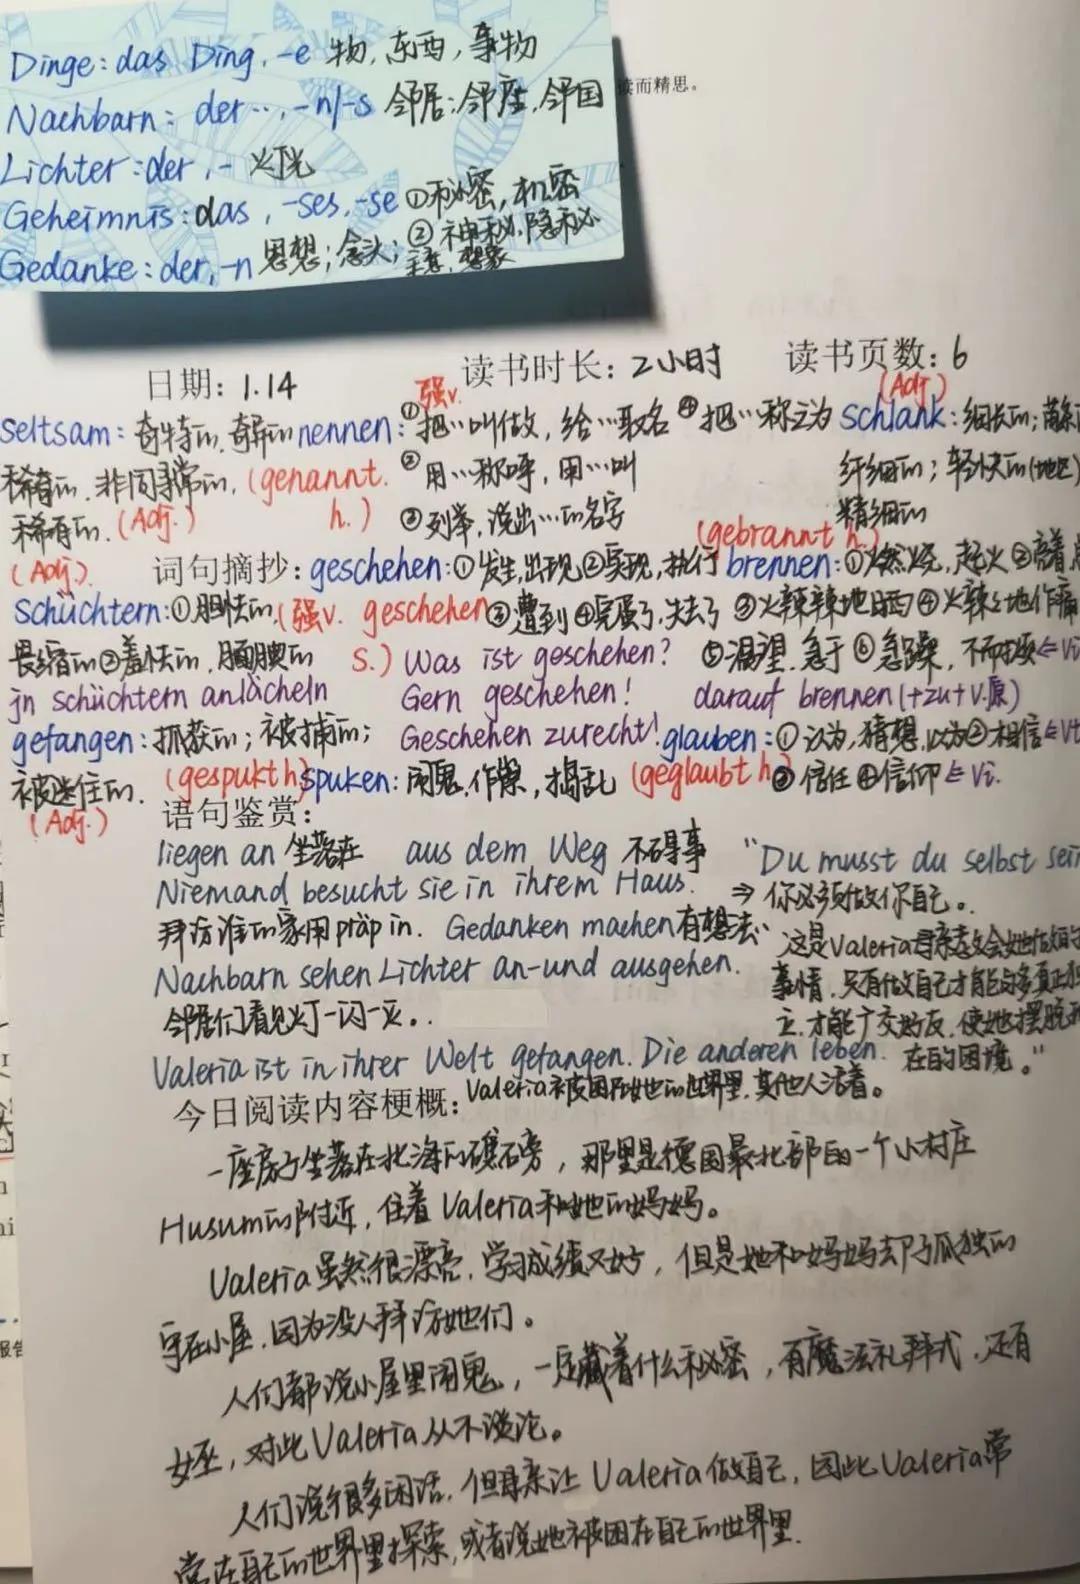 Dinge: das Ding, -e 物,东西,事物
Nachbarn: der..., -n/-s 邻居;邻座,邻国
Lichter: der, - 灯光
Geheimnis: das, -ses, -se ①秘密,机密
②神秘,隐秘
Gedanke: der, -n 思想;念头;
主意,想象
读而精思。
日期: 1.14
读书时长: 2小时
读书页数: 6
seltsam: 奇特的,奇异的
稀奇的,非同寻常的,
稀有的. (Adj.)
强v.
nennen: ①把…叫做,给…取名 ④把…称之为
(genannt. h.)
②用…称呼,用…叫
③列举,说出…的名字
(Adj.)
schlank: 细长的;
纤细的;轻快的(地区)
精细的
词句摘抄: geschehen: ①发生,出现②实现,执行
(强v. geschehen s.) ③遭到④完蛋了,失去了
Was ist geschehen?
Gern geschehen!
Geschehen zurecht!
(gebrannt h.)
brennen: ①燃烧,起火②
③火辣辣地晒④火辣辣地作痛
⑤渴望,急于⑥急躁,不耐烦 ⇐Vi
darauf brennen (+zu+V.原)
(Adj.)
Schüchtern: ①胆怯的,
畏缩的②羞怯的,腼腆的
jn schüchtern anlächeln
gefangen: 抓获的;被捕的;
被迷住的.
(Adj.)
(gespukt h)
spuken: 闹鬼,作祟,捣乱
(geglaubt h.)
glauben: ①认为,猜想,以为②相信 ⇐Vt
③信任④信仰 ⇐ Vi.
语句鉴赏:
liegen an 坐落在 aus dem Weg 不碍事
Niemand besucht sie in ihrem Haus.
拜访谁的家用präp in. Gedanken machen 有想法
Nachbarn sehen Lichter an-und ausgehen.
邻居们看见灯一闪一灭。.
Valeria ist in ihrer Welt gefangen. Die anderen leben.
Valeria被困在她的世界里,其他人活着。
"Du musst du selbst sein
⇒ 你必须做你自己。.
这是Valeria母亲教会她做的
事情,只有做自己才能够真正独
立,才能广交好友,使她摆脱
在的困境。"
今日阅读内容梗概:
一座房子坐落在北海的礁石旁,那里是德国最北部的一个小村庄
Husum的附近,住着Valeria和她的妈妈。
Valeria虽然很漂亮,学习成绩又好,但是她和妈妈却孤独的
守在小屋,因为没人拜访她们。
人们都说小屋里闹鬼,一定藏着什么秘密,有魔法礼拜式,还有
女巫,对此Valeria从不谈论。
人们说很多闲话,但母亲让Valeria做自己,因此Valeria常
常在自己的世界里探索,或者说她被困在自己的世界里.